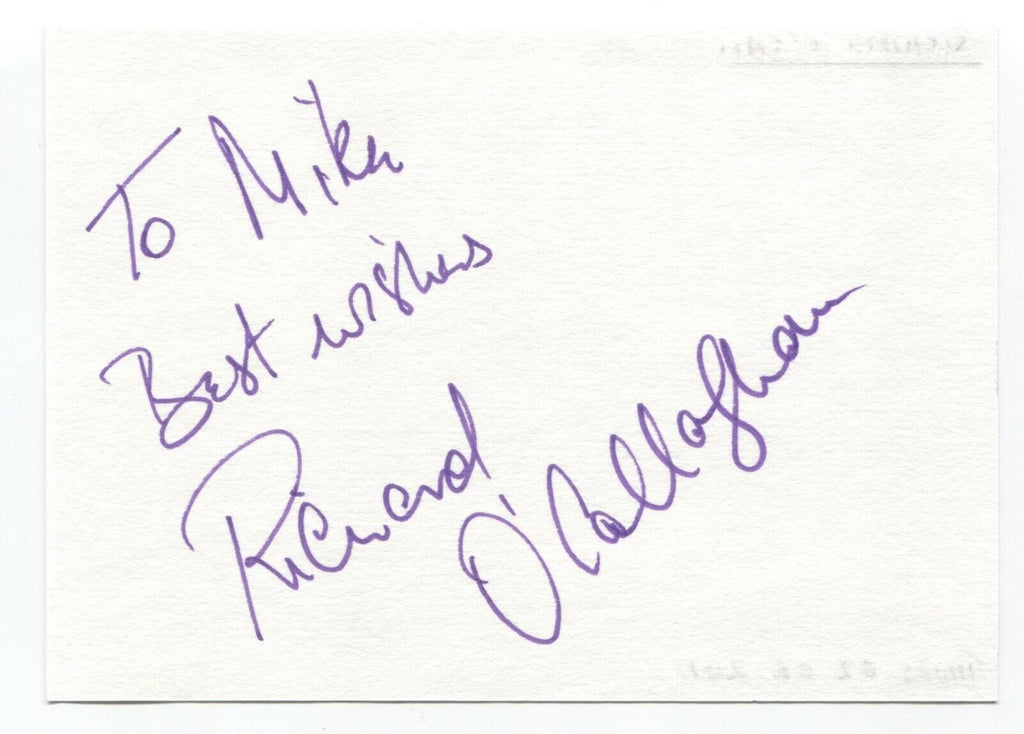 To Mike
Best wishes
Richard
O'Callaghan